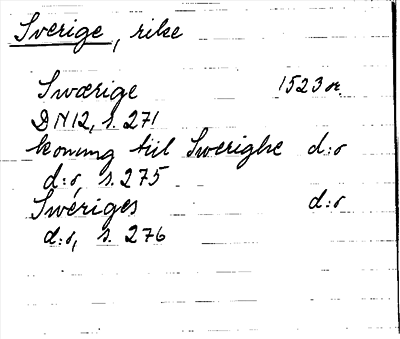 Sverige, rike
Swærige 1523 or.
DN12, s. 271
konung till Swerighe d:o
d:o, s. 275
Sweriges d:o
d:o, s. 276